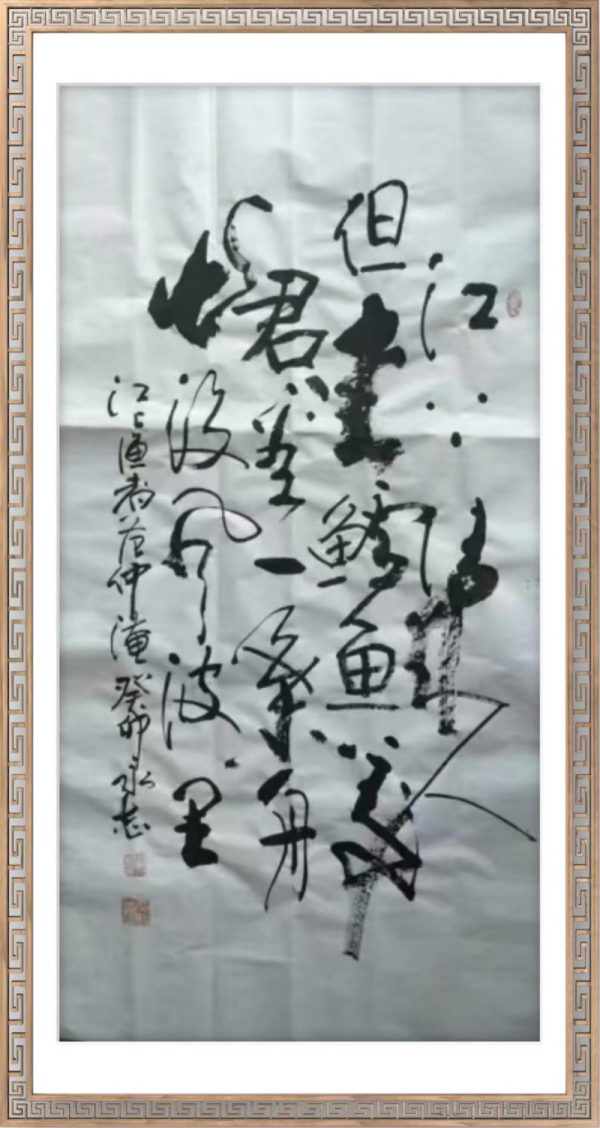 江上往来人
但爱鲈鱼美
君看一葉舟
出没风波里
江上渔者范仲淹癸卯